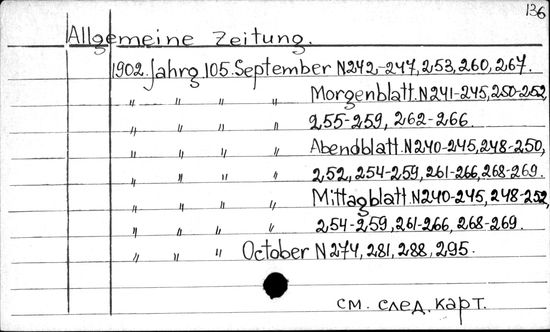 136
Allgemeine Zeitung.
1902. Jahrg 105. September N242,-247, 253, 260, 267.
" " " " Morgenblatt. N241-245, 250-252,
255-259, 262-266.
" " " " Abendblatt. N240-245, 248-250,
" " " " 252, 254-259, 261-266, 268-269.
" " " " Mittagblatt. N240-245, 248-252,
" " " " 254-259, 261-266, 268-269.
" " " October N274, 281, 288, 295.
см. след. карт.